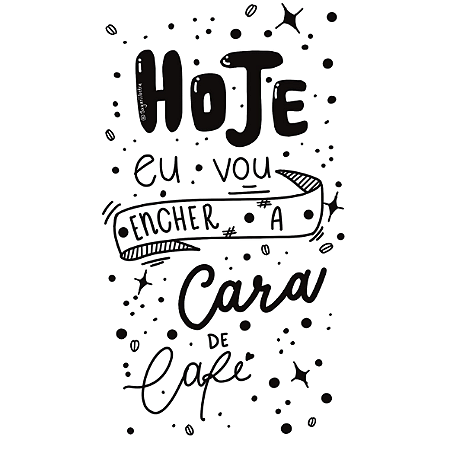 HOJE
eu vou
ENCHER A
Cara
DE
Café